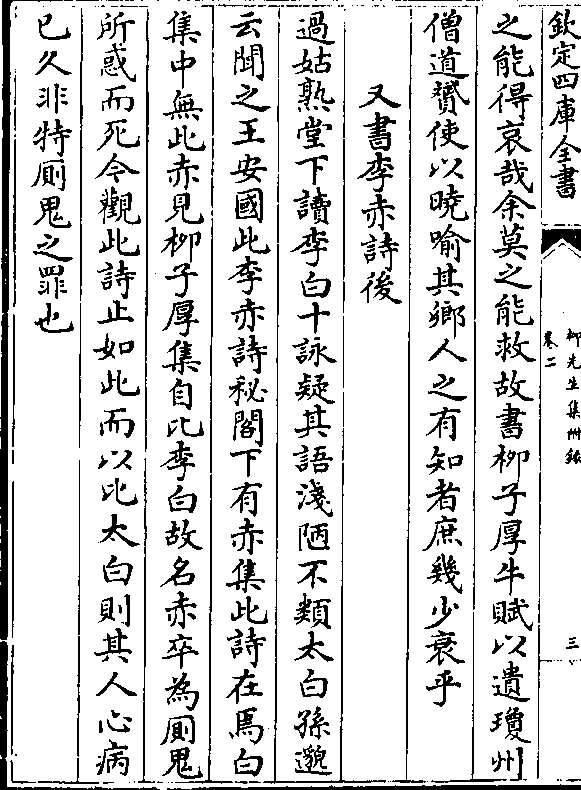 欽定四庫全書
柳先生集附錄
卷二
三
之能得哀哉余莫之能救故書栁子厚牛賦以遺瓊州
僧道贇使以曉喻其鄉人之有知者庶幾少衰乎
又書李赤詩後
過姑熟堂下讀李白十詠疑其語淺陋不類太白孫邈
云聞之王安國此李赤詩秘閣下有赤集此詩在焉白
集中無此赤見栁子厚集自比李白故名赤卒為厠鬼
所惑而死今觀此詩止如此而以比太白則其人心病
已久非特厠鬼之罪也